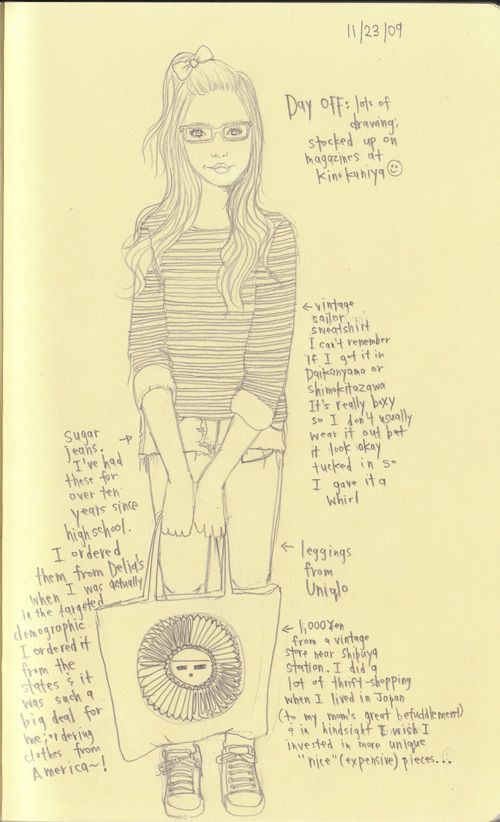 11/23/09
Day off: lots of
drawing;
stocked up on
magazines at
kinokuniya
← vintage
sailor
sweatshirt
I can't remember
if I got it in
Daikanyama or
shimokitazawa
It's really boxy
so I don't usually
wear it out but
it look okay
tucked in so
I gave it a
whirl
sugar
jeans. →
I've had
these for
over ten
years since
highschool.
I ordered
them from Delia's
when I was actually
in the targeted
demographic.
I ordered it
from the
states & it
was such a
big deal for
me; ordering
clothes from
America~!
← leggings
from
Uniqlo
← 1,000 Yen
from a vintage
store near Shibuya
station. I did a
lot of thrift-shopping
when I lived in Japan
(to my mom's great befuddlement)
& in hindsight I wish I
invested in more unique
"nice" (expensive) pieces...